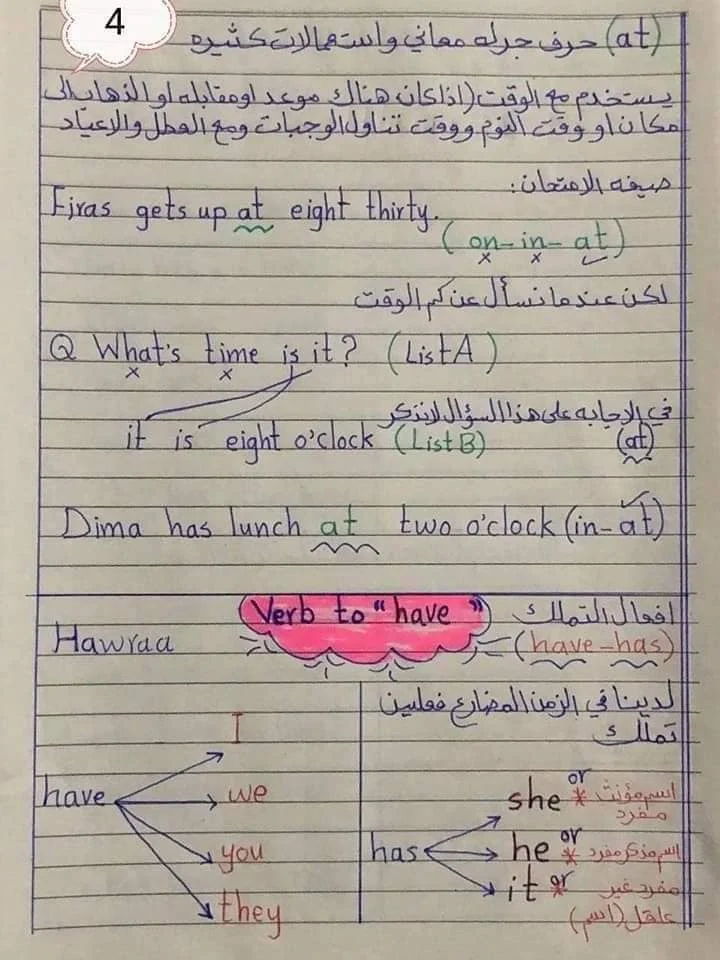 4
(at) حرف جر له معاني واستعمالات كثيره
يستخدم مع الوقت (اذا كان هناك موعد او مقابله او الذهاب الى
مكان او وقت النوم ووقت تناول الوجبات ومع العطل والاعياد
صيغه الامتحان:
Firas gets up at eight thirty.
(on-in-at)
لكن عندما نسأل عن كم الوقت
Q What's time is it? (List A)
في الاجابه على هذا السؤال لانذكر
it is eight o'clock (List B) (at)
Dima has lunch at two o'clock (in-at)
Verb to "have" افعال التملك
Hawraa (have-has)
لدينا في الزمن المضارع فعلين
تملك
I
have we
you
they
she or * اسم مؤنث
مفرد
has he or * اسم مذكر مفرد
it or * مفرد غير
عاقل (اسم)